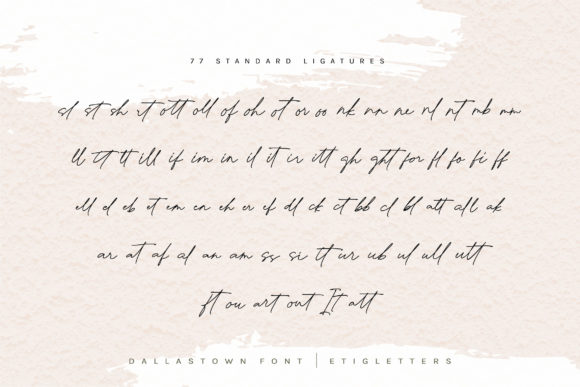 77 STANDARD LIGATURES
sl st sh rt ott oll of oh ot or oo nk nn ne nl nt mb mm
ll tt ill if im in il it ir itt gh ght for fl fo fi ff
ell el eb et em en eh er ef dl ck ct bb cl bl att all ak
ar at af al an am ss si tt ur ub ul ull utt
ft ou art out It att
DALLASTOWN FONT | ETIGLETTERS